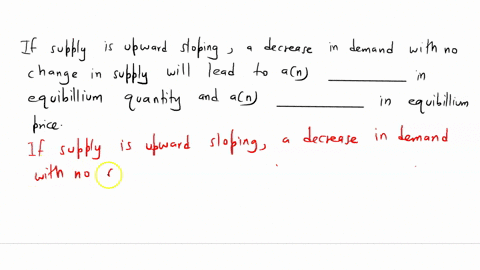 If supply is upward sloping, a decrease in demand with no
change in supply will lead to a(n) __________ in
equibillium quantity and a(n) __________ in equibillium
price.
If supply is upward sloping, a decrease in demand
with no c